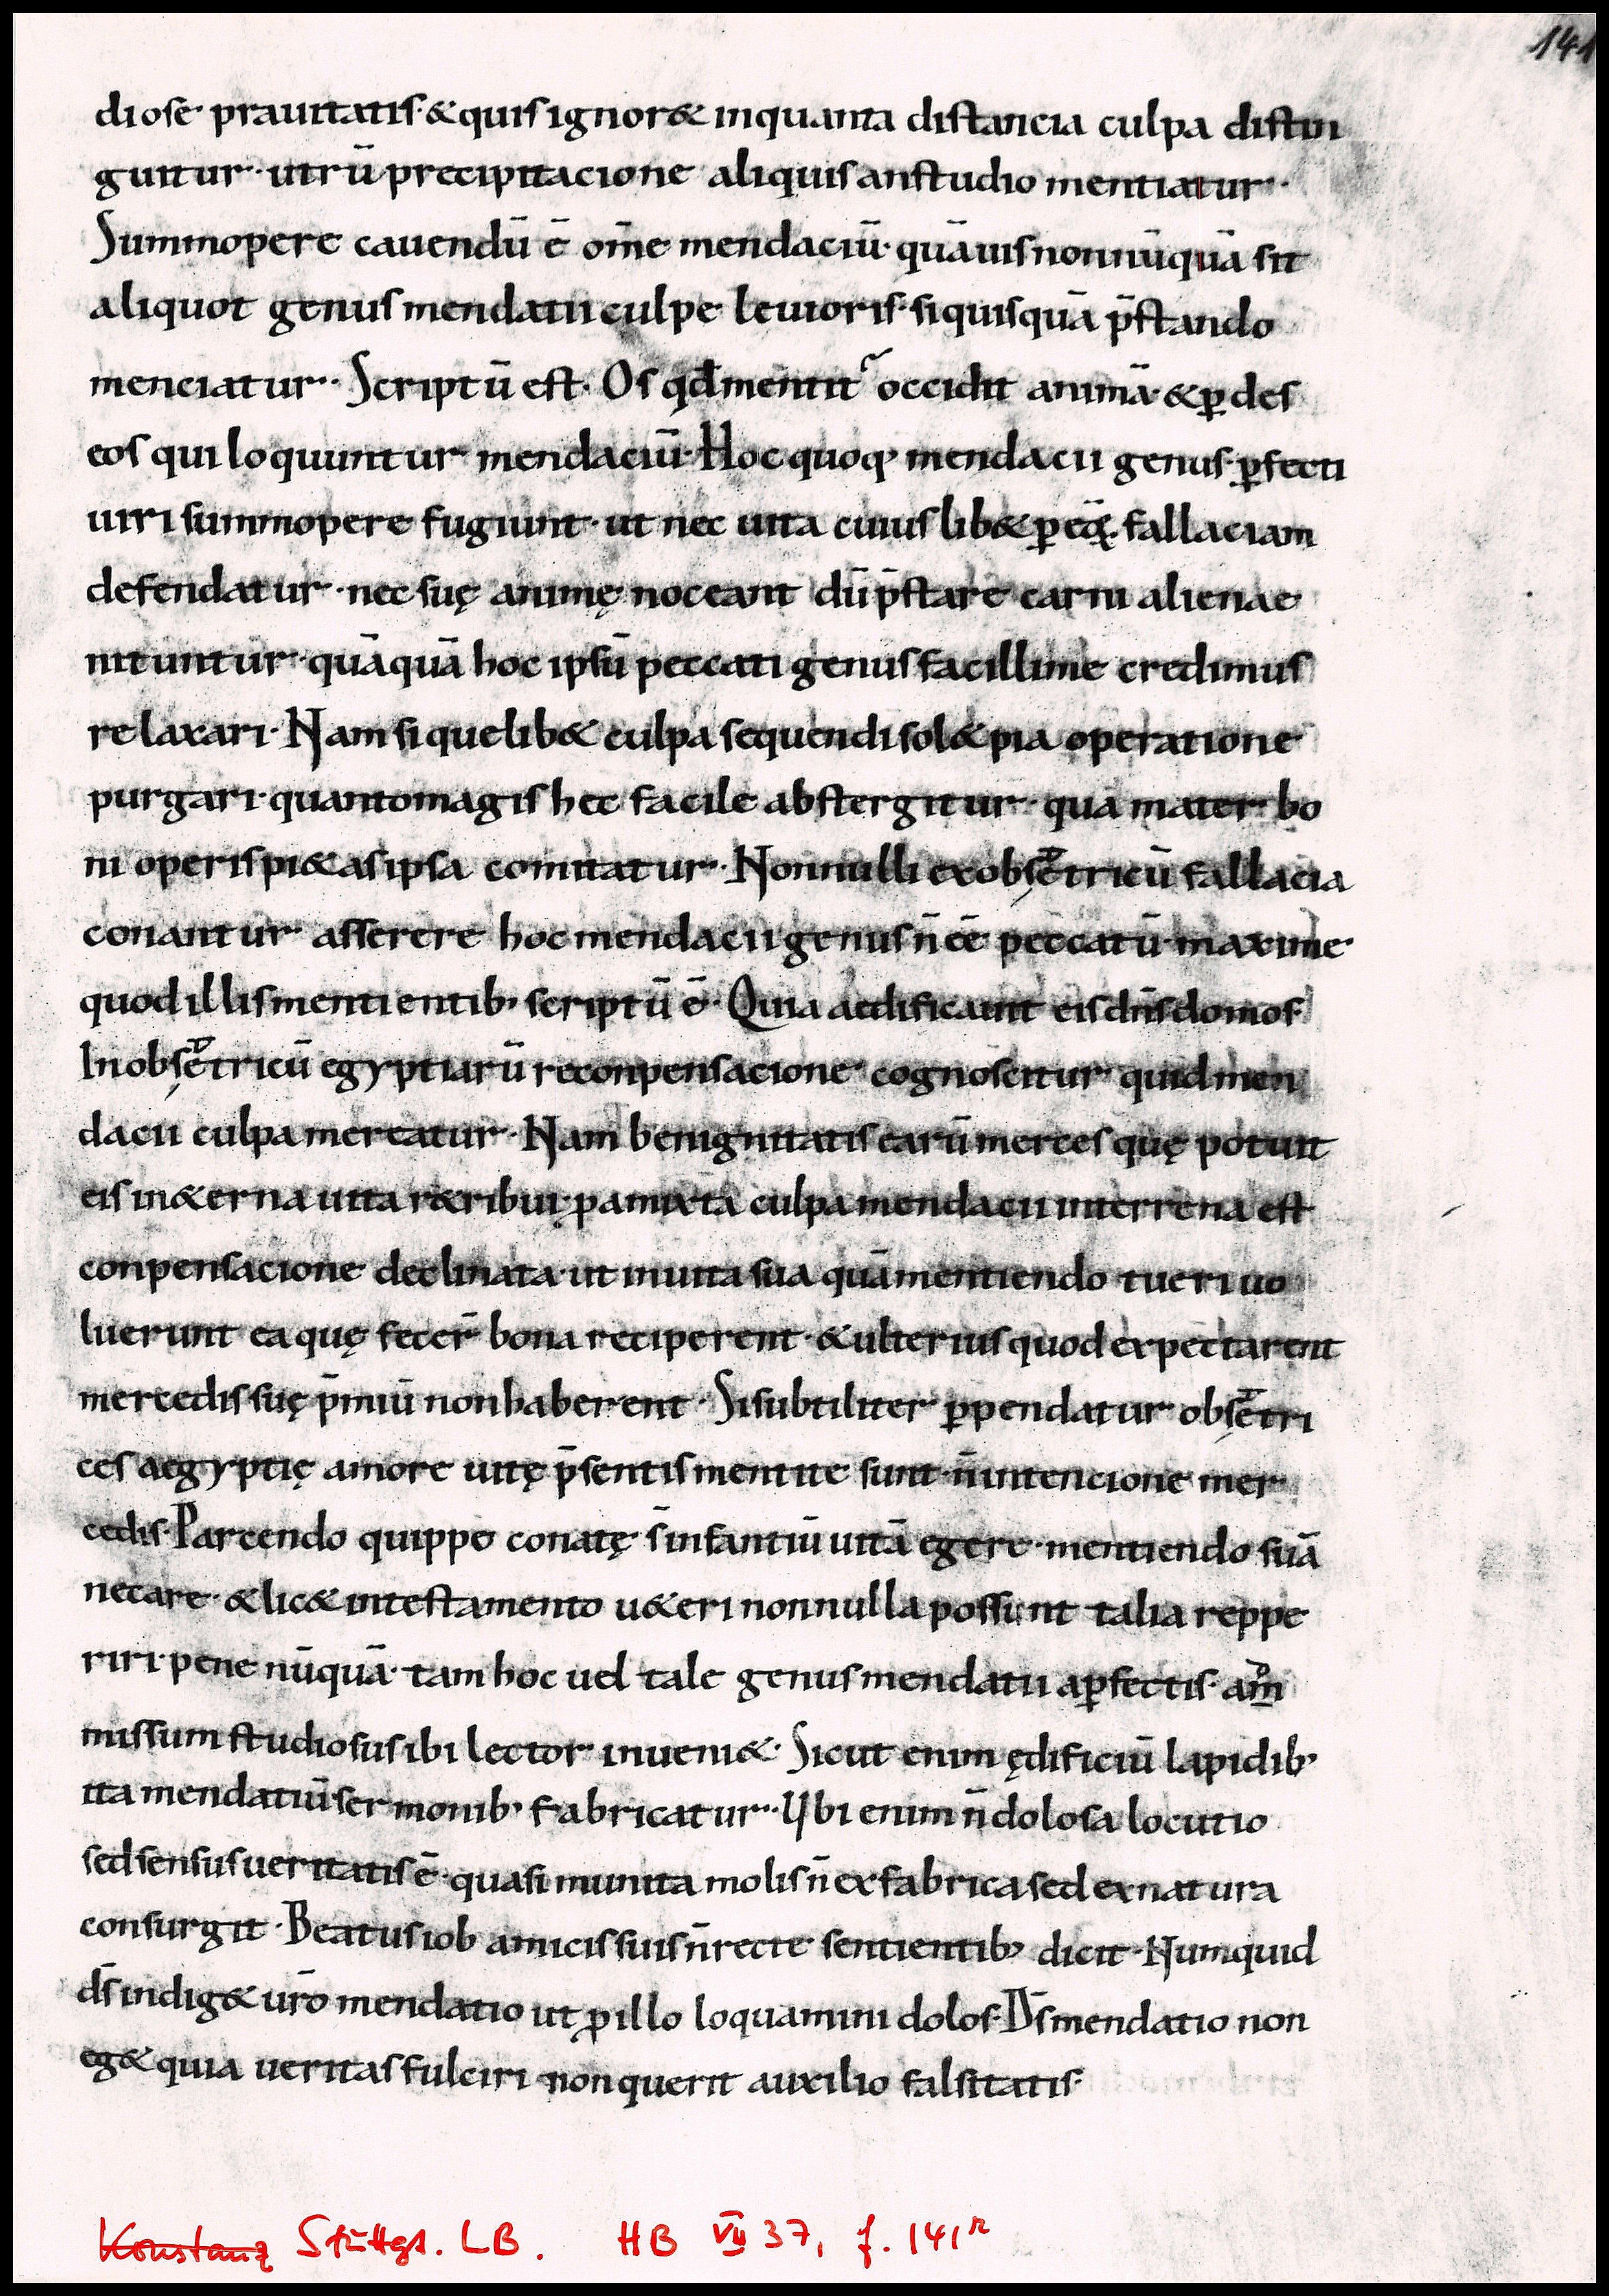 141
diose prauitatis · & quis ignor& inquanta distancia culpa distin
guitur · utrū precipitacione aliquis anstudio mentiatur ·
Summopere cauendū ē om̄e mendaciū · quāuis nonnūquā sit
aliquot genus mendatii culpe leuioris · siquisquā p̄stando
menciatur · Scriptū est · Os qđ mentit᷑ occidit animā · & ꝑdes
eos qui loquuntur mendaciū · Hoc quoq; mendacii genus ꝑfecti
uiri summopere fugiunt · ut nec uita cuiuslib& ꝑ eā fallaciam
defendatur · nec suę animę noceant dū p̄stare carni alienae
nituntur · quāquā hoc ipsū peccati genus facillime credimus
relaxari · Nam si quelib& culpa sequendi sol& pia operatione
purgari · quantomagis hec facile abstergitur · qua mater bo
ni operis pi&as ipsa comitatur · Nonnulli ex obsētricū fallacia
conantur asserere hoc mendacii genus n̄ ēē peccatū · maxime
quod illis mentientib; scriptū ē · Quia aedificauit eis dn̄s domos ·
In obsētricū egyptiarū reconpensacione cognoscitur quid men
dacii culpa mereatur · Nam benignitatis earū merces quę potuit
eis in&erna uita r&ribui · ꝓ amixta culpa mendacii interrena est
conpensacione declinata · ut inuita sua quā mentiendo tueri uo
luerunt ea quę fecer̄ bona reciperent · & ulterius quod expectarent
mercedis suę p̄miū non haberent · Si subtiliter ꝑpendatur obsētri
ces aegyptię amore uitę p̄sentis mentite sunt · n̄ intencione mer
cedis · Parcendo quippe conatę s̄ infantiū uitā egere · mentiendo suā
necare · & lic& intestamento u&eri nonnulla possunt talia reppe
riri · pene nūquā · tam hoc uel tale genus mendatii aꝑfectis · am̄
missum studiosus ibi lector inueni& · Sicut enim ędificiū lapidib;
ita mendatiū sermonib; fabricatur · Ubi enim n̄ dolosa locutio
sed sensus ueritatis ē · quasi munita molis n̄ ex fabrica sed ex natura
consurgit · Beatus iob amicis suis n̄ recte sentientib; dicit · Numquid
ds̄ indig& ur̄o mendatio ut ꝓ illo loquamini dolos · Ds̄ mendatio non
eg& quia ueritas fulciri non querit auxilio falsitatis ·
Konstanz Stuttgt. LB. HB VII 37, f. 141r